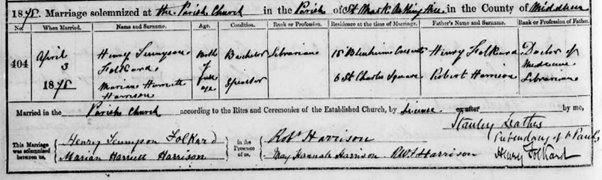 18 . Marriage solemnized at the Parish Church in the Parish of St Mark Notting Hill in the County of Middlesex
No. When Married. Name and Surname. Age. Condition. Rank or Profession. Residence at the time of Marriage. Father's Name and Surname. Rank or Profession of Father.
404 April Henry Tennyson Both Bachelor Librarian Blenheim Crescent Henry Folkard Doctor of
3 Folkard of Medicine
18 Marian Harriett full Spinster 6 St Charles Square Robert Harrison Librarian
Harrison age
Married in the Parish Church according to the Rites and Ceremonies of the Established Church, by Licence or after by me,
Stanley Leathes
This Marriage was solemnized between us, Henry Tennyson Folkard In the Presence of us, Robt Harrison Prebendary of St Paul's
Marian Harriett Harrison May Hannah Harrison Harrison Henry Folkard